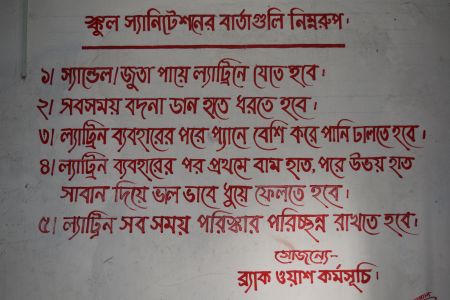 স্কুল স্যানিটেশনের বার্তাগুলি নিম্নরূপ।
১। স্যান্ডেল/জুতা পায়ে ল্যাট্রিনে যেতে হবে।
২। সবসময় বদনা ডান হাতে ধরতে হবে।
৩। ল্যাট্রিন ব্যবহারের পরে প্যানে বেশি করে পানি ঢালতে হবে।
৪। ল্যাট্রিন ব্যবহারের পর প্রথমে বাম হাত, পরে উভয় হাত
সাবান দিয়ে ভাল ভাবে ধুয়ে ফেলতে হবে।
৫। ল্যাট্রিন সব সময় পরিস্কার পরিচ্ছন্ন রাখতে হবে।
সৌজন্যে-
ব্র্যাক ওয়াশ কর্মসূচি।